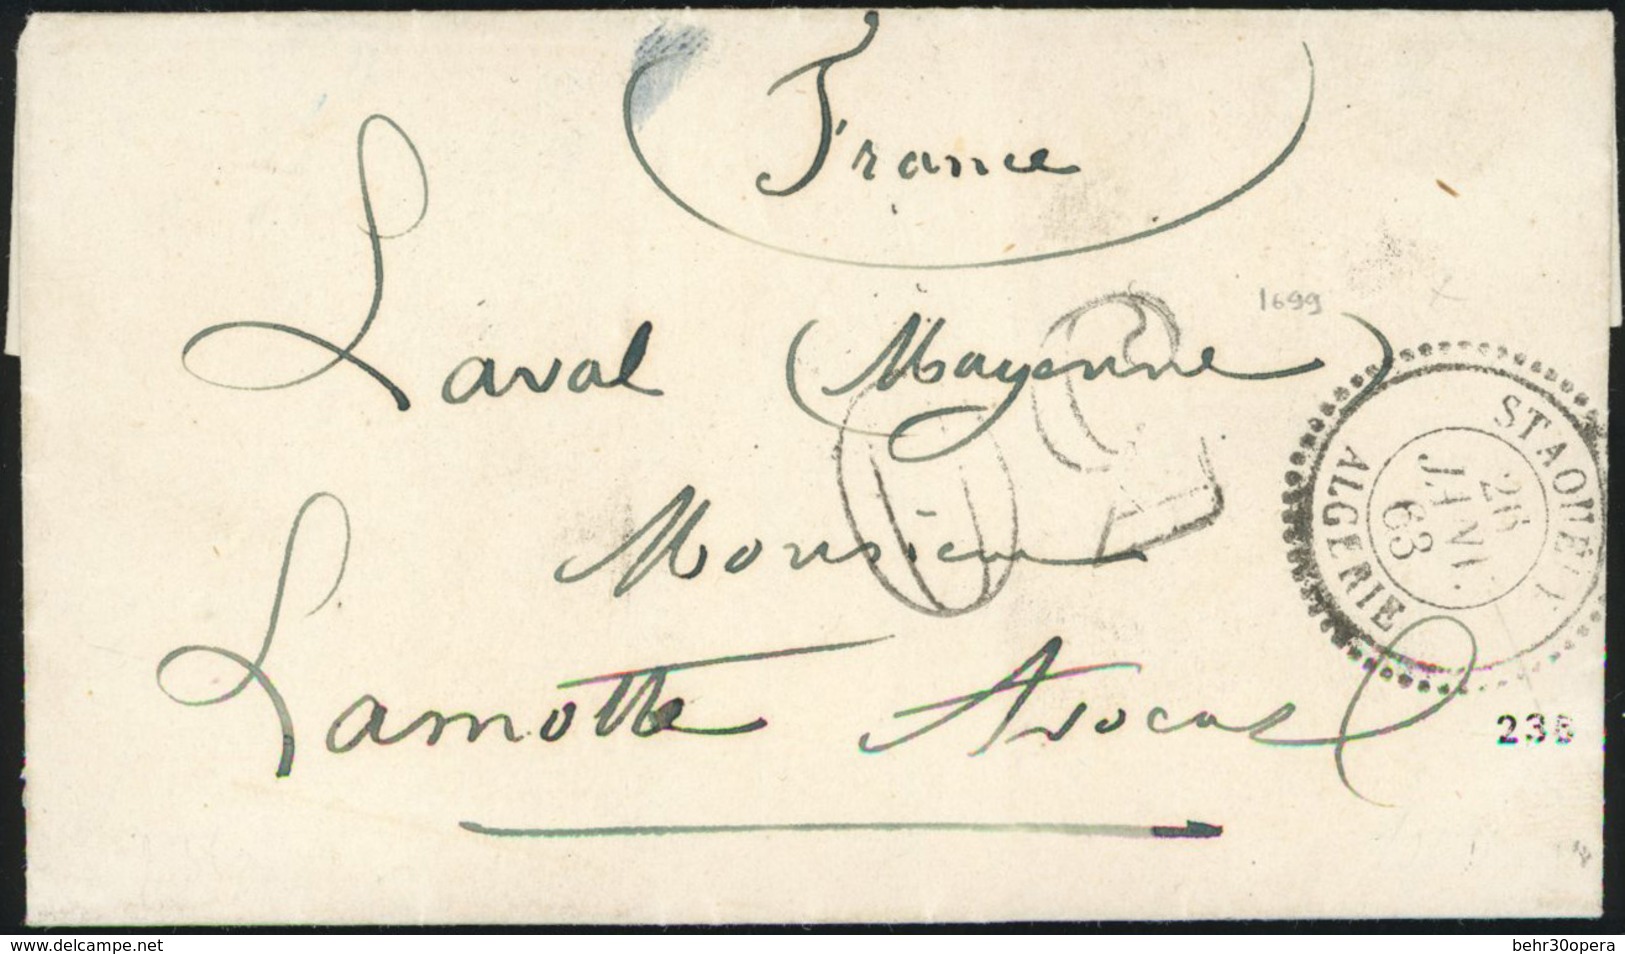 France
1699
Laval (Mayenne)
STAOUÉLI
26
JANV.
63
ALGERIE
Monsieur
Lamotte Avocat
www.delcampe.net
behr30opera